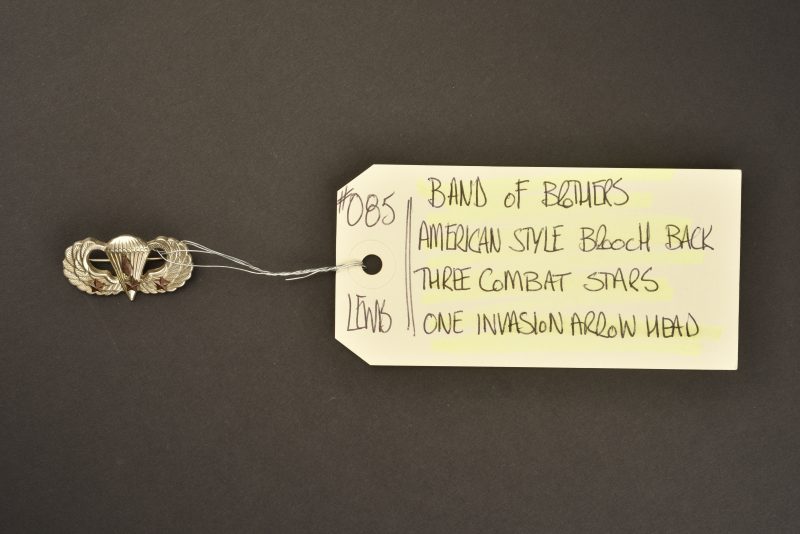 #085
LEWIS
BAND OF BROTHERS
AMERICAN STYLE BROOCH BACK
THREE COMBAT STARS
ONE INVASION ARROW HEAD